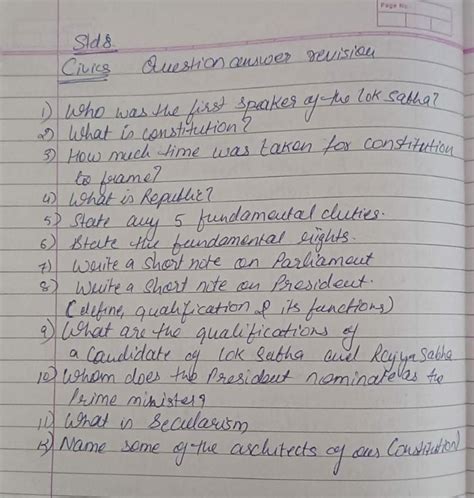 Page No.
Std 8.
Civics Question answer revision
1) Who was the first speaker of the lok Sabha?
2) What is constitution?
3) How much time was taken for constitution
to frame?
4) What is Republic?
5) State any 5 fundamental duties.
6) State the fundamental rights.
7) Write a short note on Parliament
8) Write a short note on President.
(define, qualification & its functions)
9) What are the qualifications of
a candidate of lok Sabha and Rajya Sabha
10) Whom does the President nominate as the
Prime minister?
11) What is Secularism
12) Name some of the architects of our Constitution